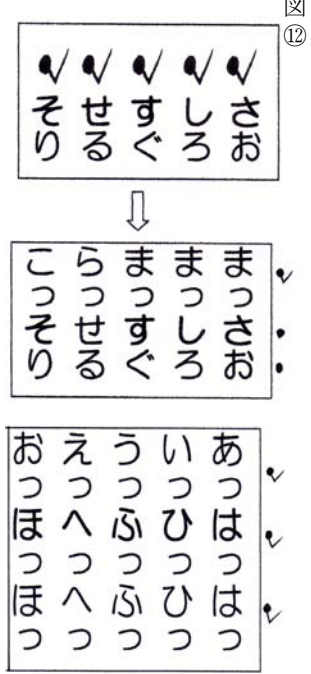 図⑫
さお
しろ
すぐ
せる
そり
まっさお
まっしろ
まっすぐ
らっせる
こっそり
あっはっはっ
いっひっひっ
うっふっふっ
えっへっへっ
おっほっほっ